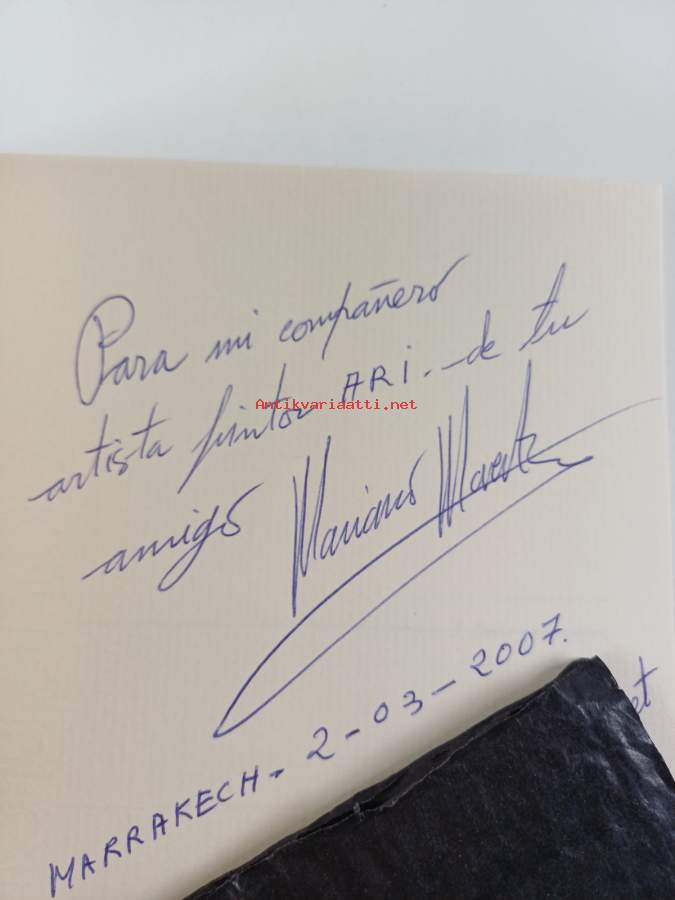 Para mi compañero
artista pintor ARI. de tu
amigo Mariano
MARRAKECH - 2-03-2007.
et
Antikvariaatti.net